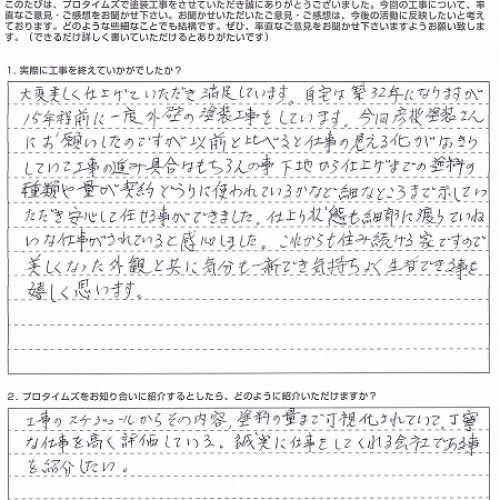 このたびは、プロタイムズで塗装工事をさせていただき誠にありがとうございました。今回の工事について、率
直なご意見・ご感想をお聞かせ下さい。お聞かせいただいたご意見・ご感想は、今後の活動に反映したいと考え
ております。どのような些細なことでも結構です。ぜひ、率直なご意見をお聞かせ下さいますようお願い致しま
す。（できるだけ詳しく書いていただけるとありがたいです）
1. 実際に工事を終えていかがでしたか？
大変美しく仕上げていただき満足しています。自宅は築32年になりますが
15年程前に一度外壁の塗装工事をしています。今回彦根塗装さん
にお願いしたのですが以前と比べると仕事の見える化がはっきり
していて工事の進み具合はもちろんの事下地から仕上げまでの塗料の
種類や量が契約どうりに使われているかなど細なところまで示してい
ただき安心して任せる事ができました。仕上り状態も細部に渡りていね
いな仕事がされていると感心しました。これからも住み続ける家ですので
美しくなった外観と共に気分も一新でき気持ちよく生活できる事を
嬉しく思います。
2. プロタイムズをお知り合いに紹介するとしたら、どのように紹介いただけますか？
工事のスケジュールからその内容、塗料の量まで可視化されていて、丁寧
な仕事を高く評価している。誠実に仕事をしてくれる会社である事
を紹介したい。